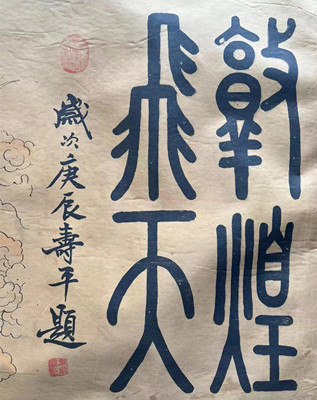 敦煌
飛天
歲次庚辰壽平題